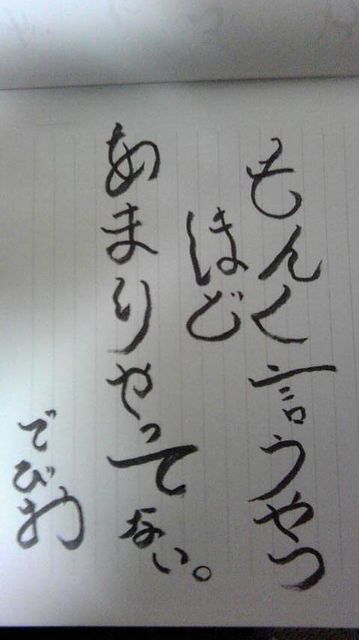 もんく言うやつ
ほど
あまりやってない。
でびわ